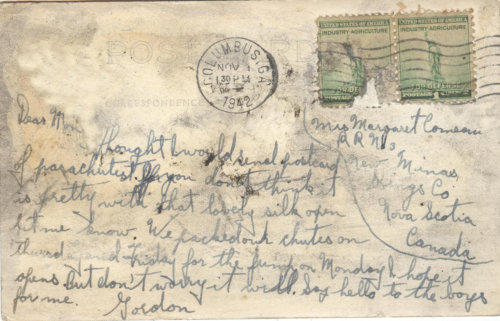 POST
CORRESPONDENCE
COLUMBUS, GA.
NOV
1 30 PM
1942
UNITED STATES OF AMERICA
INDUSTRY AGRICULTURE
FOR DE
UNITED STATES OF AMERICA
INDUSTRY AGRICULTURE
FOR DEFENSE
Dear
thought I would send postcard
of parachutist. If you don't think it
is pretty with that lovely silk open
let me know. We packed our chutes on
Thursday and Friday for the jump on Monday I hope it
opens but don't worry it will. Say hello to the boys
for me.
Gordon
Mrs Margaret
R.R. No
New Minas,
Kings Co
Nova Scotia
Canada